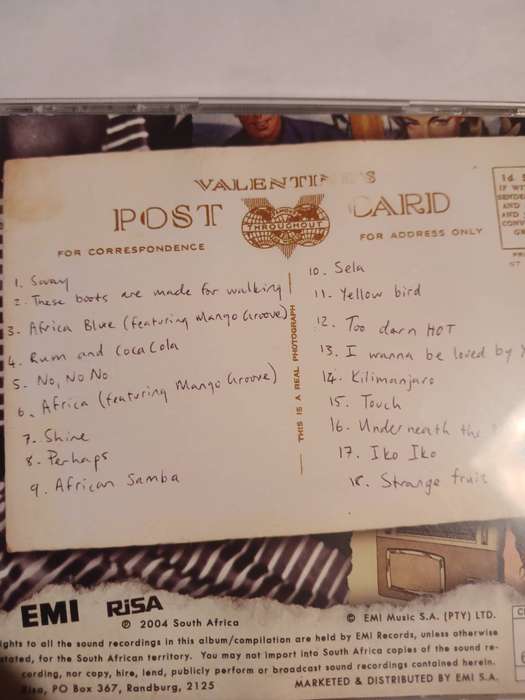 VALENTINE'S
POST CARD
THROUGHOUT
FOR CORRESPONDENCE
FOR ADDRESS ONLY
1d
IF
AND
AND
THIS IS A REAL PHOTOGRAPH
1. Sway
2. These boots are made for walking
3. Africa Blue (featuring Mango Groove)
4. Rum and Coca Cola
5. No, No No
6. Africa (featuring Mango Groove)
7. Shine
8. Perhaps
9. African Samba
10. Sela
11. Yellow bird
12. Too darn HOT
13. I wanna be loved by
14. Kilimanjaro
15. Touch
16. Underneath the
17. Iko Iko
18. Strange fruit
EMI RiSA
℗ 2004 South Africa
© EMI Music S.A. (PTY) LTD.
ights to all the sound recordings in this album/compilation are held by EMI Records, unless otherwise
stated, for the South African territory. You may not import into South Africa copies of the sound re-
cording, nor copy, hire, lend, publicly perform or broadcast sound recordings contained herein.
Risa, PO Box 367, Randburg, 2125
MARKETED & DISTRIBUTED BY EMI S.A.